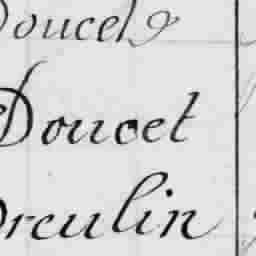 Doucet
Doucet
Drculin